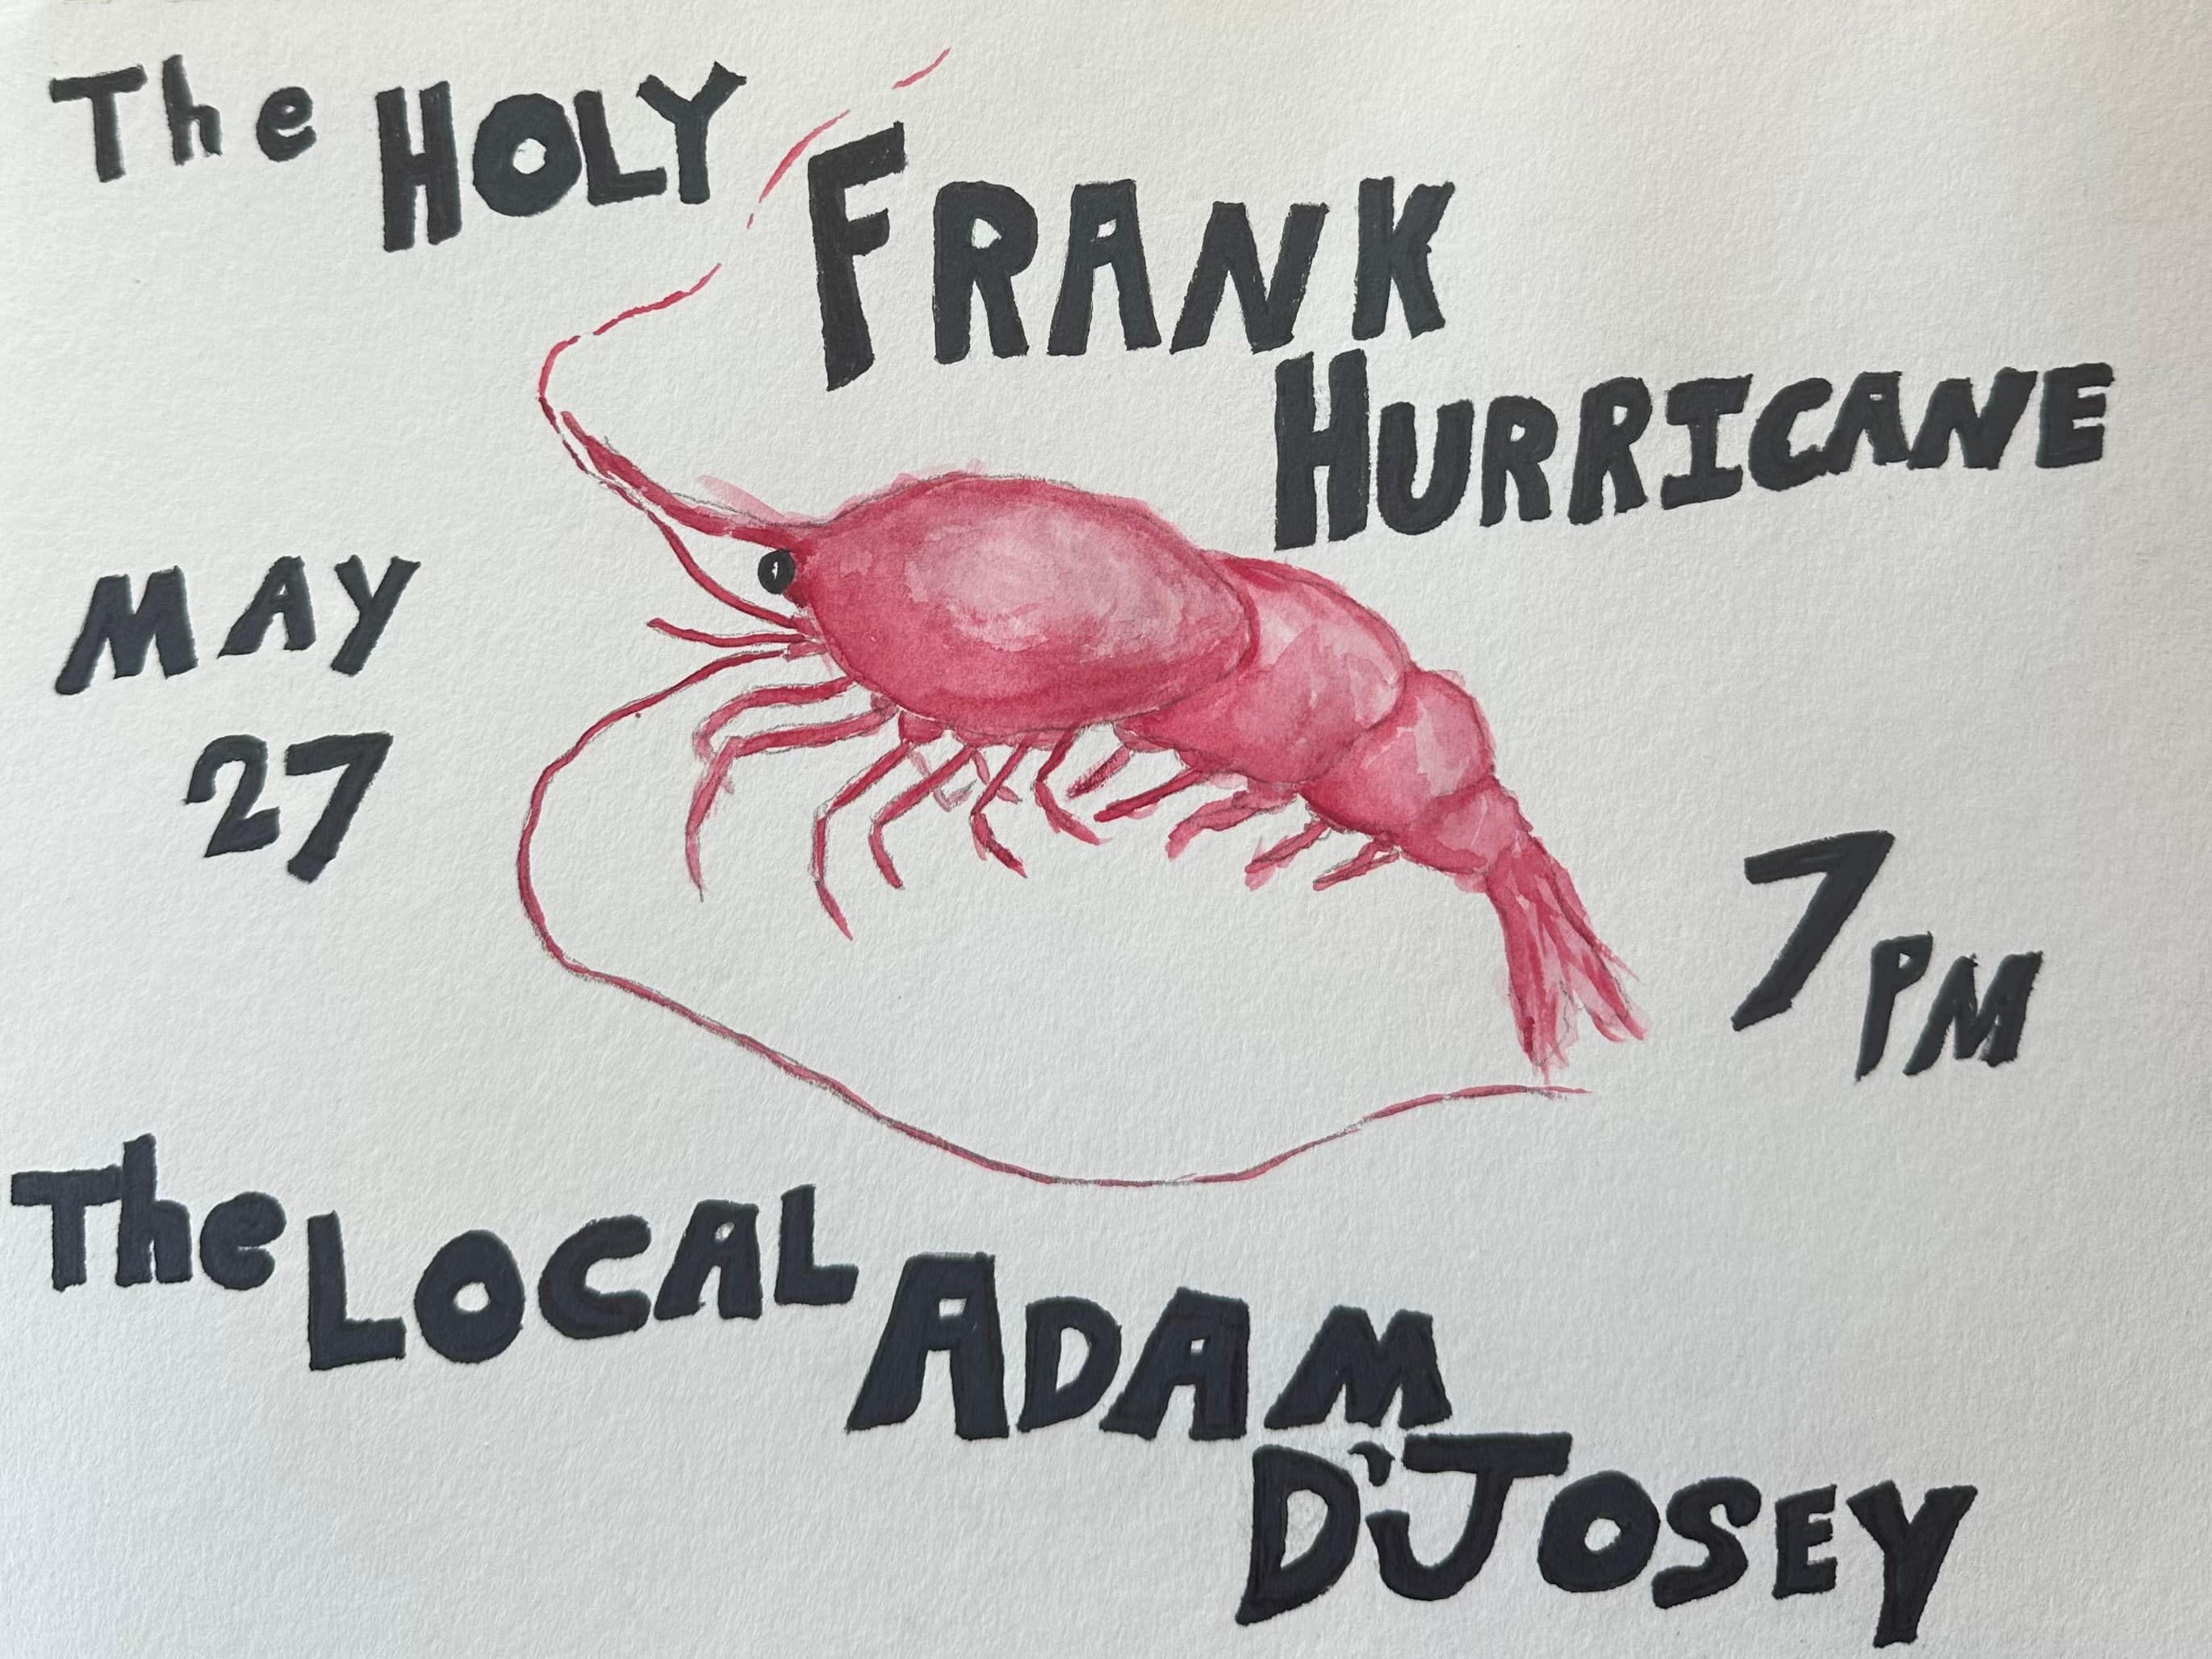 The HOLY
FRANK
HURRICANE
MAY
27
7PM
The LOCAL
ADAM
D'JOSEY